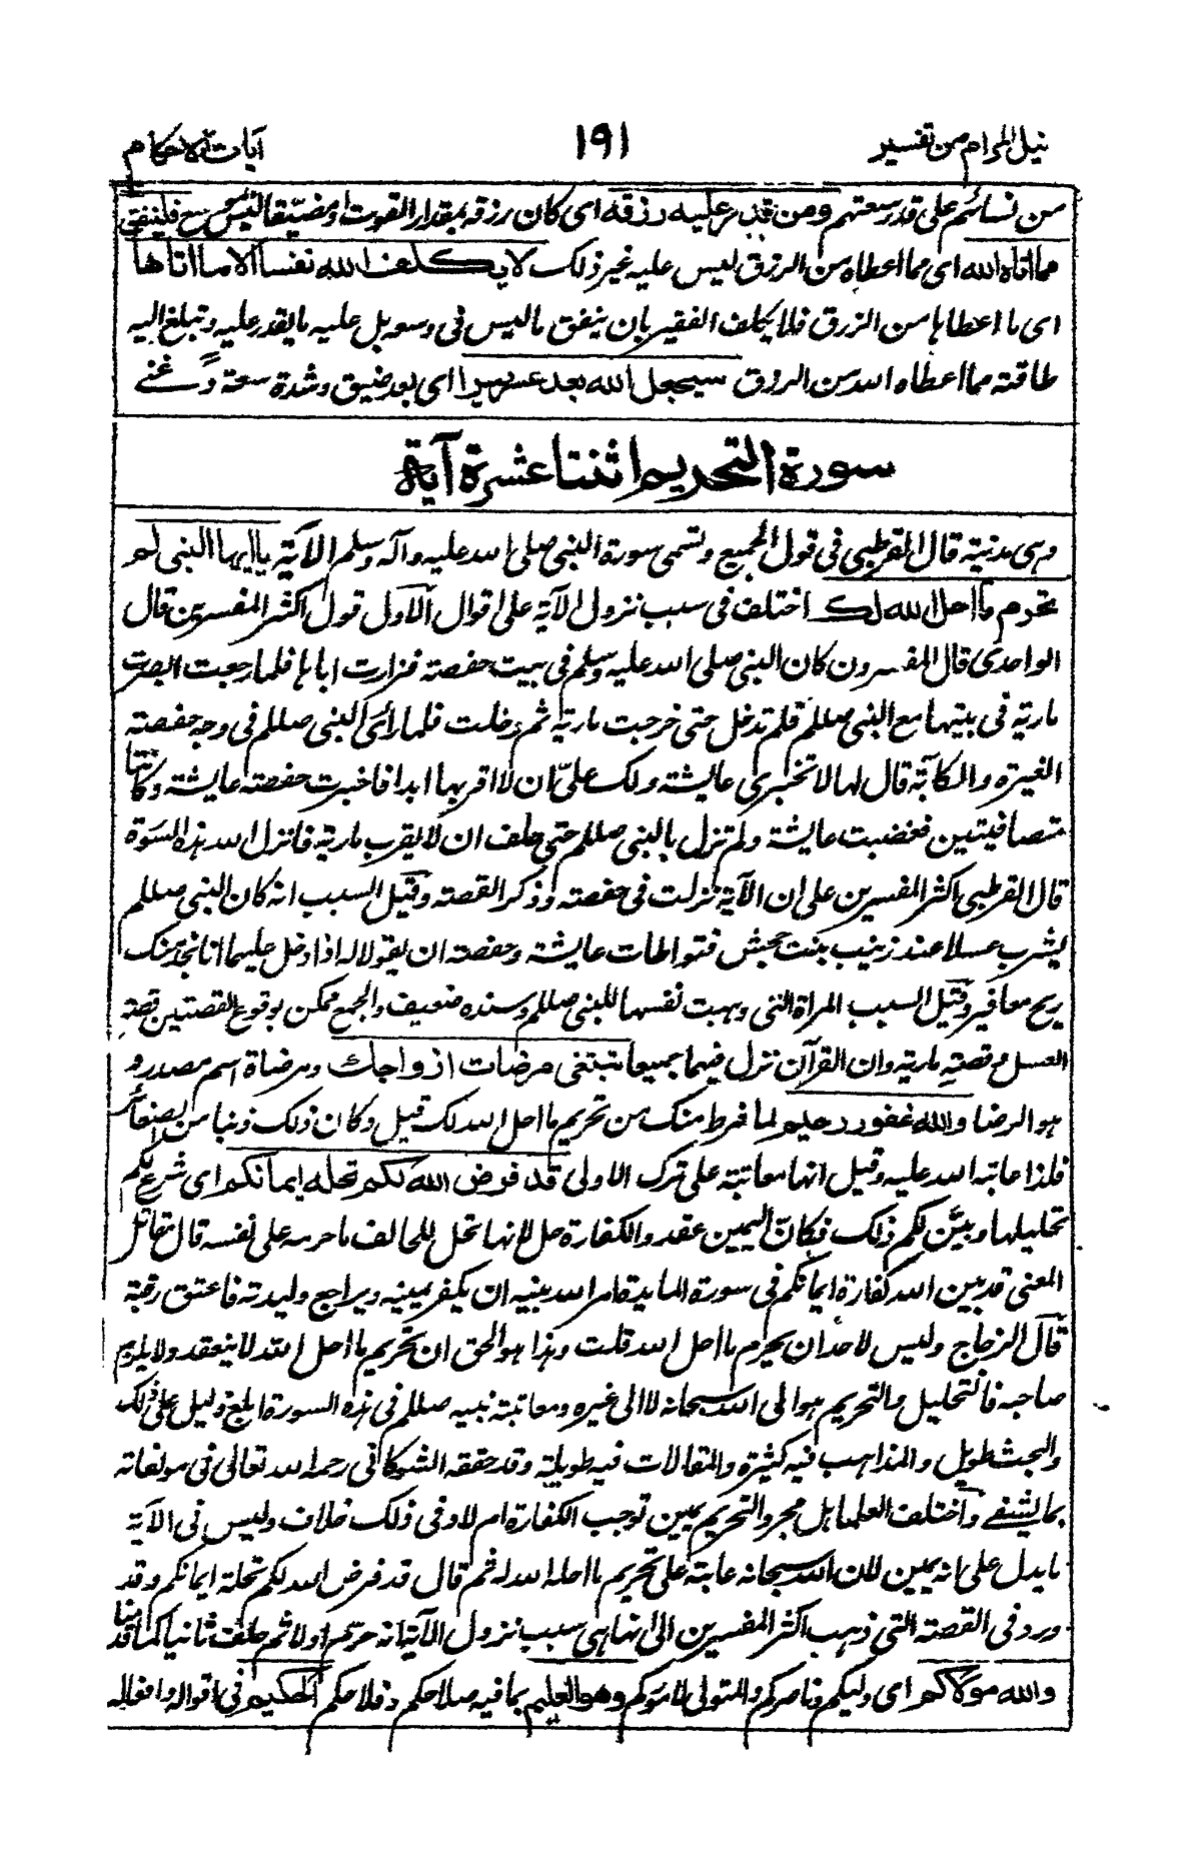 نيل المرام من تفسير
١٩١
آيات الاحكام
من نسائهم على قدر سعتهم ومن قدر عليه رزقه اى كان رزقه بمقدار القوت او مضيقا ليس بموسع فلينفق
مما اتاه الله اى مما اعطاه من الرزق ليس عليه غير ذلك لا يكلف الله نفسا الا ما اتاها
اى ما اعطاها من الرزق فلا يكلف الفقير بان ينفق ما ليس فى وسعه بل عليه ما يقدر عليه وتبلغ اليه
طاقته مما اعطاه الله من الرزق سيجعل الله بعد عسر يسرا اى بعد ضيق وشدة سعة وغنى
سورة التحريم اثنتا عشرة آية
وهى مدنية قال القرطبى فى قول الجميع وتسمى سورة النبى صلى الله عليه وآله وسلم الآية يا ايها النبى لم
تحرم ما احل الله لك اختلف فى سبب نزول الآية على اقوال الاول قول اكثر المفسرين قال
الواحدى قال المفسرون كان النبى صلى الله عليه وسلم فى بيت حفصة فزارت اباها فلما رجعت ابصرت
مارية فى بيتها مع النبى صللم فلم تدخل حتى خرجت مارية ثم دخلت فلما رأى النبى صللم فى وجه حفصة
الغيرة والكآبة قال لها لا تخبرى عايشة ولك على ان لا اقربها ابدا فاخبرت حفصة عايشة وكانتا
متصافيتين فغضبت عايشة ولم تزل بالنبى صللم حتى حلف ان لا يقرب مارية فانزل الله هذه السورة
قال القرطبى اكثر المفسرين على ان الآية نزلت فى حفصة وذكر القصة وقيل السبب انه كان النبى صللم
يشرب عسلا عند زينب بنت جحش فتواطات عايشة وحفصة ان يقولا له اذا دخل عليهما انا نجد منك
ريح معافير وقيل السبب المراة التى وهبت نفسها للنبى صللم وسنده ضعيف والجمع ممكن بوقوع القصتين قصة
العسل وقصة مارية وان القرآن نزل فيهما جميعا تبتغى مرضات ازواجك ومرضاة اسم مصدر و
هو الرضا والله غفور رحيم لما فرط منك من تحريم ما احل الله لك قيل وكان ذلك ذنبا من الصغائر
فلذا عاتبه الله عليه وقيل انها معاتبة على ترك الاولى قد فرض الله لكم تحلة ايمانكم اى شرع لكم
تحليلها وبين لكم ذلك فكان اليمين عقد والكفارة حل لانها تحل للحالف ما حرمه على نفسه قال مقاتل
المعنى قد بين الله كفارة ايمانكم فى سورة المايدة امر الله نبيه ان يكفر يمينه ويراجع وليدته فاعتق رقبة
قال الزجاج وليس لاحد ان يحرم ما احل الله قلت وهذا هو الحق ان تحريم ما احل الله لا ينعقد ولا يلزم
صاحبه فالتحليل والتحريم هو الى الله سبحانه لا الى غيره ومعاتبته نبيه صللم فى هذه السورة ابلغ دليل على ذلك
والبحث طويل والمذاهب فيه كثيرة والمقالات فيه طويلة وقد حققه الشوكانى رحمه الله تعالى فى مولفاته
بما يشفى واختلف العلما هل مجرد التحريم يمين توجب الكفارة ام لا وفى ذلك خلاف وليس فى الآية
ما يدل على انه يمين لان الله سبحانه عاتبه على تحريم ما احله الله له ثم قال قد فرض الله لكم تحلة ايمانكم وقد
ورد فى القصة التى ذهب اكثر المفسرين الى انها هى سبب نزول الآية انه حرم اولا ثم حلف ثانيا كما قدمنا
والله مولاكم اى وليكم وناصركم والمتولى لاموركم وهو العليم بما فيه صلاحكم وفلاحكم الحكيم فى اقواله وافعاله